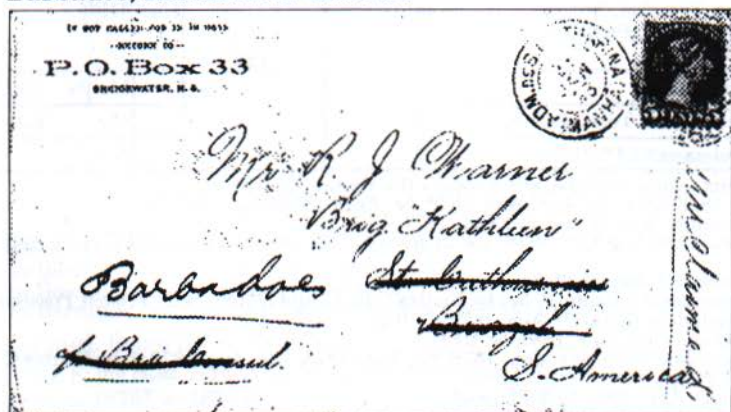 IF NOT CALLED FOR IN 10 DAYS
RETURN TO
P.O. Box 33
BRIDGEWATER, N. S.
Mr R J Warner
Brig "Kathleen"
Barbadoes St Catharina
Brazil
c/o Bra Consul.
S. America
Unclaimed